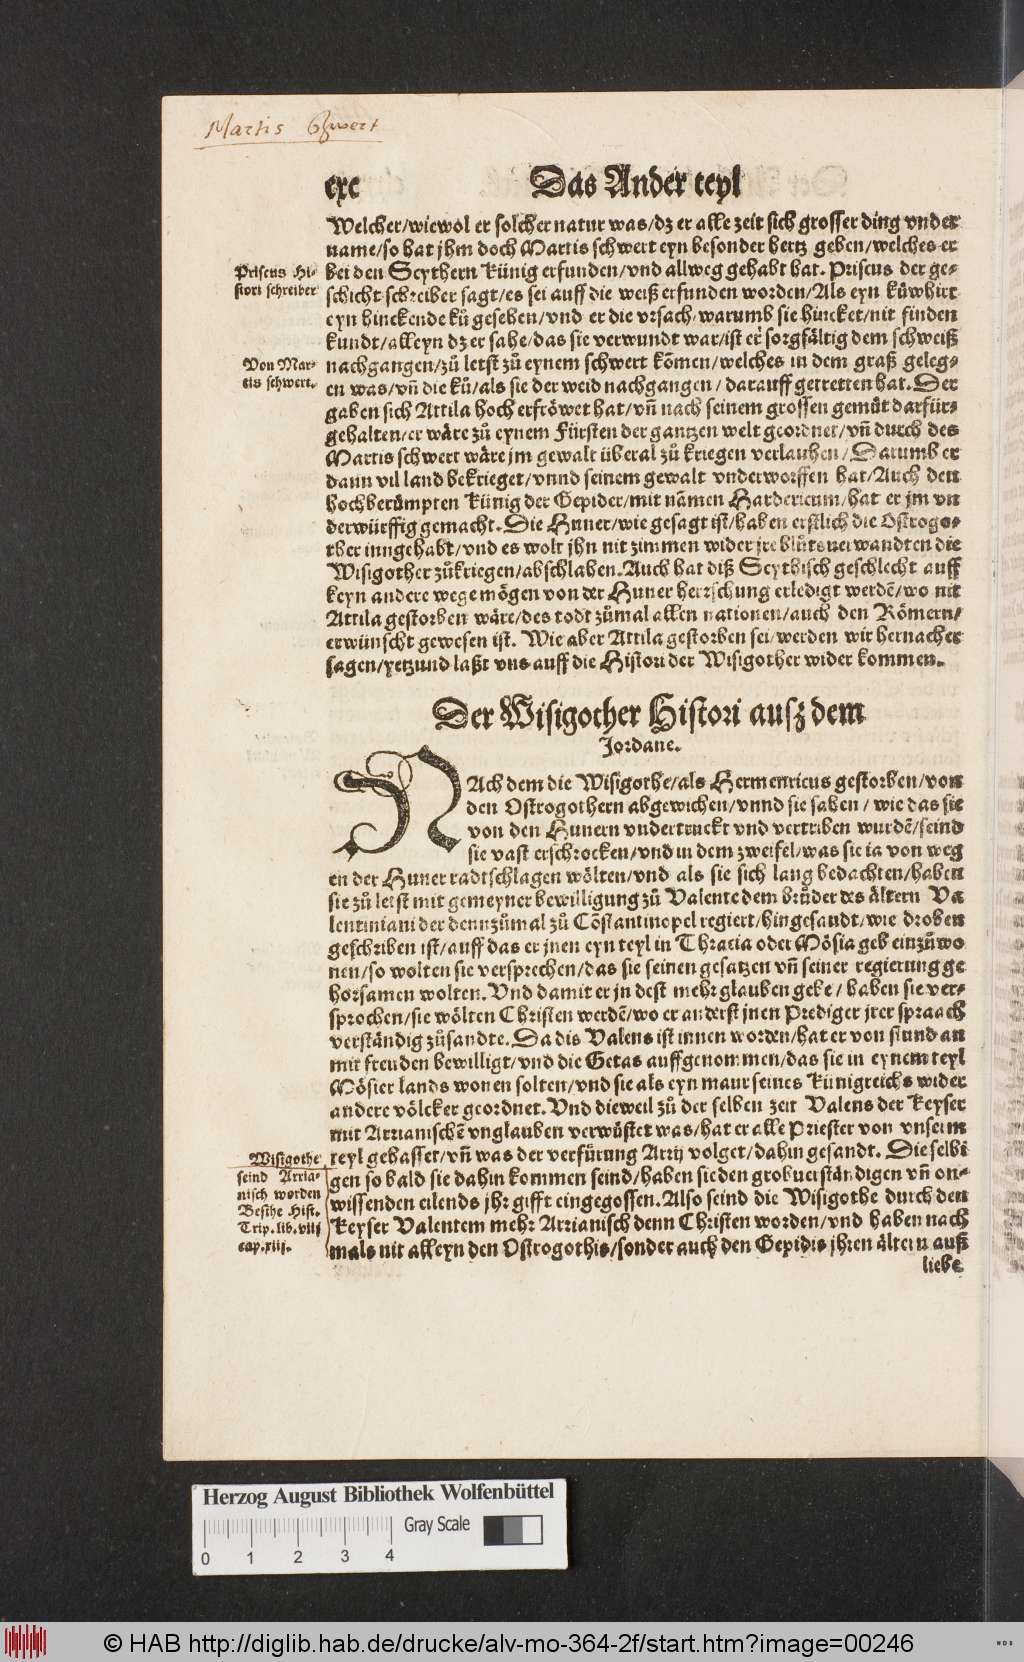 Martis Schwert
cxc
Das Ander teyl
Welcher/wiewol er solcher natur was/dz er alle zeit sich grosser ding vnder
name/so hat jhm doch Martis schwert eyn besonder hertz geben/welches er
Priscus Hi-
stori schreiber
bei den Scythern Künig erfunden/vnd allweg gehabt hat. Priscus der ge-
schicht schreiber sagt/es sei auff die weiß erfunden worden/Als eyn kůwhirt
eyn hinckende ků gesehen/vnd er die vrsach warumb sie hincket/nit finden
kundt/alleyn dz er sahe/das sie verwundt war/ist er sorgfältig dem schweiß
Von Mar-
tis schwert.
nachgangen/zů letst zů eynem schwert kōmen/welches in dem graß geleg-
en was/vñ die ků/als sie der weid nachgangen/darauff getretten hat. Der
gaben sich Attila hoch erfröwet hat/vñ nach seinem grossen gemüt darfür-
gehalten/er wäre zů eynem Fürsten der gantzen welt geordnet/vñ durch des
Martis schwert wäre jm gewalt überal zů kriegen verlauhen/Darumb er
dann vil land bekrieget/vnnd seinem gewalt vnderworffen hat/Auch den
hochberümpten Künig der Gepider/mit nämen Hardericum/hat er jm vn
derwürffig gemacht. Die Huner/wie gesagt ist/haben erstlich die Ostrogo-
ther inngehabt/vnd es wolt jhn nit zimmen wider jre blůtsuerwandten die
Wisigother zůkriegen/abschlahen. Auch hat diß Scythisch geschlecht auff
keyn andere wege mögen von der Huner herrschung erledigt werdē/wo nit
Attila gestorben wäre/des todt zůmal allen nationen/auch den Römern/
erwünscht gewesen ist. Wie aber Attila gestorben sei/werden wir hernacher
sagen/yetzund laßt vns auff die Histori der Wisigother wider kommen.
Der Wisigother Histori ausz dem
Jordane.
NAch dem die Wisigothe/als Hermenricus gestorben/von
den Ostrogothern abgewichen/vnnd sie sahen/wie das sie
von den Hunern vndertruckt vnd vertriben wurdē/seind
sie vast erschrocken/vnd in dem zweifel/was sie ja von weg
en der Huner radtschlagen wölten/vnd als sie sich lang bedachten/haben
sie zů letst mit gemeyner bewilligung zů Valente dem brůder des ältern Va
lentiniani der dennzůmal zů Cōstantinopel regiert/hingesandt/wie droben
geschriben ist/auff das er jnen eyn teyl in Thracia oder Mösia geb einzůwo
nen/so wolten sie versprechen/das sie seinen gesatzen vñ seiner regierung ge
horsamen wolten. Vnd damit er jn dest mehr glauben gebe/haben sie ver-
sprochen/sie wölten Christen werdē/wo er anderst jnen Prediger jrer spraach
verständig zůsandte. Da dis Valens ist innen worden/hat er von stund an
mit freuden bewilligt/vnd die Getas auffgenommen/das sie in eynem teyl
Mösier lands wonen solten/vnd sie als eyn maur seines Künigreichs wider
andere völcker geordnet. Vnd dieweil zů der selben zeit Valens der Keyser
mit Arrianischē vnglauben verwüstet was/hat er alle Priester von vnserm
Wisigothe
seind Arria-
nisch worden
Besihe Hist.
Trip.lib.viij
cap.xiij.
teyl gehasset/vñ was der verfürung Arrij volget/dahin gesandt. Die selbi
gen so bald sie dahin kommen seind/haben sie den grobuerständigen vñ on-
wissenden eilends jhr gifft eingegossen. Also seind die Wisigothe durch den
Keyser Valentem mehr Arrianisch denn Christen worden/vnd haben nach
mals nit alleyn den Ostrogothis/sonder auch den Gepidis jhren ältern auß
liebe
Herzog August Bibliothek Wolfenbüttel
Gray Scale
0 1 2 3 4
© HAB http://diglib.hab.de/drucke/alv-mo-364-2f/start.htm?image=00246